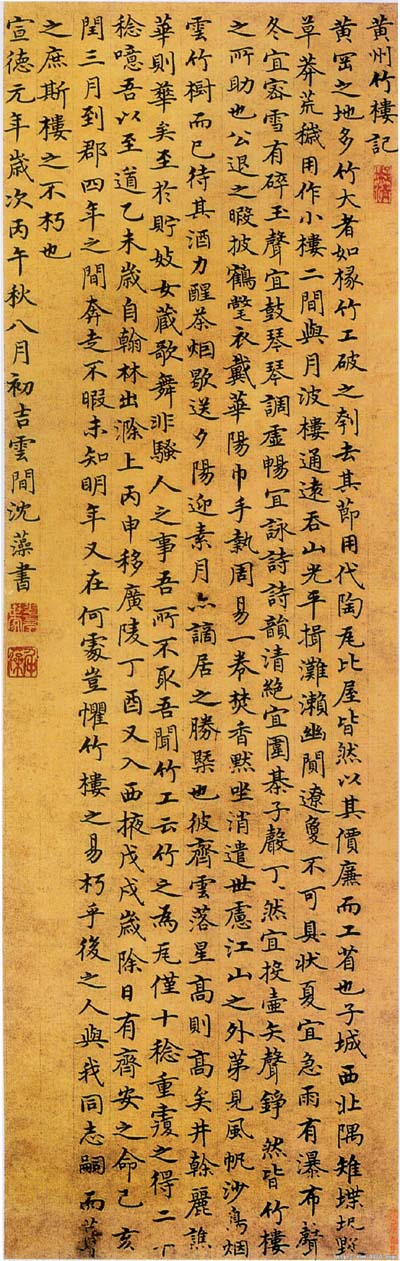 黄州竹樓記
黄岡之地多竹大者如椽竹工破之刳去其節用代陶瓦比屋皆然以其價廉而工省也子城西北隅雉堞圯毀
草莽荒穢用作小樓二間與月波樓通遠吞山光平挹灘瀨幽闃遼敻不可具狀夏宜急雨有瀑布聲
冬宜密雪有碎玉聲宜鼓琴琴調虛暢宜詠詩詩韻清絶宜圍棊子聲丁丶然宜投壺矢聲錚丶然皆竹樓
之所助也公退之暇披鶴氅衣戴華陽巾手執周易一卷焚香默坐消遣世慮江山之外第見風帆沙鳥烟
雲竹樹而已待其酒力醒茶烟歇送夕陽迎素月亦謫居之勝槩也彼齊雲落星高則高矣井榦麗譙
華則華矣至於貯妓女藏歌舞非騷人之事吾所不取吾聞竹工云竹之為瓦僅十稔重覆之得二十
稔噫吾以至道乙未歲自翰林出滁上丙申移廣陵丁酉又入西掖戊戌歲除日有齊安之命己亥
閏三月到郡四年之間奔走不暇未知明年又在何處豈懼竹樓之易朽乎後之人與我同志嗣而葺
之庶斯樓之不朽也
宣德元年歲次丙午秋八月初吉雲間沈藻書